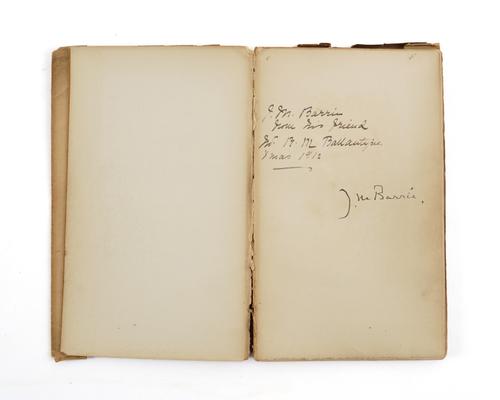 J. M. Barrie
from his friend
R. M Ballantyne
Xmas 1912
J. M Barrie.